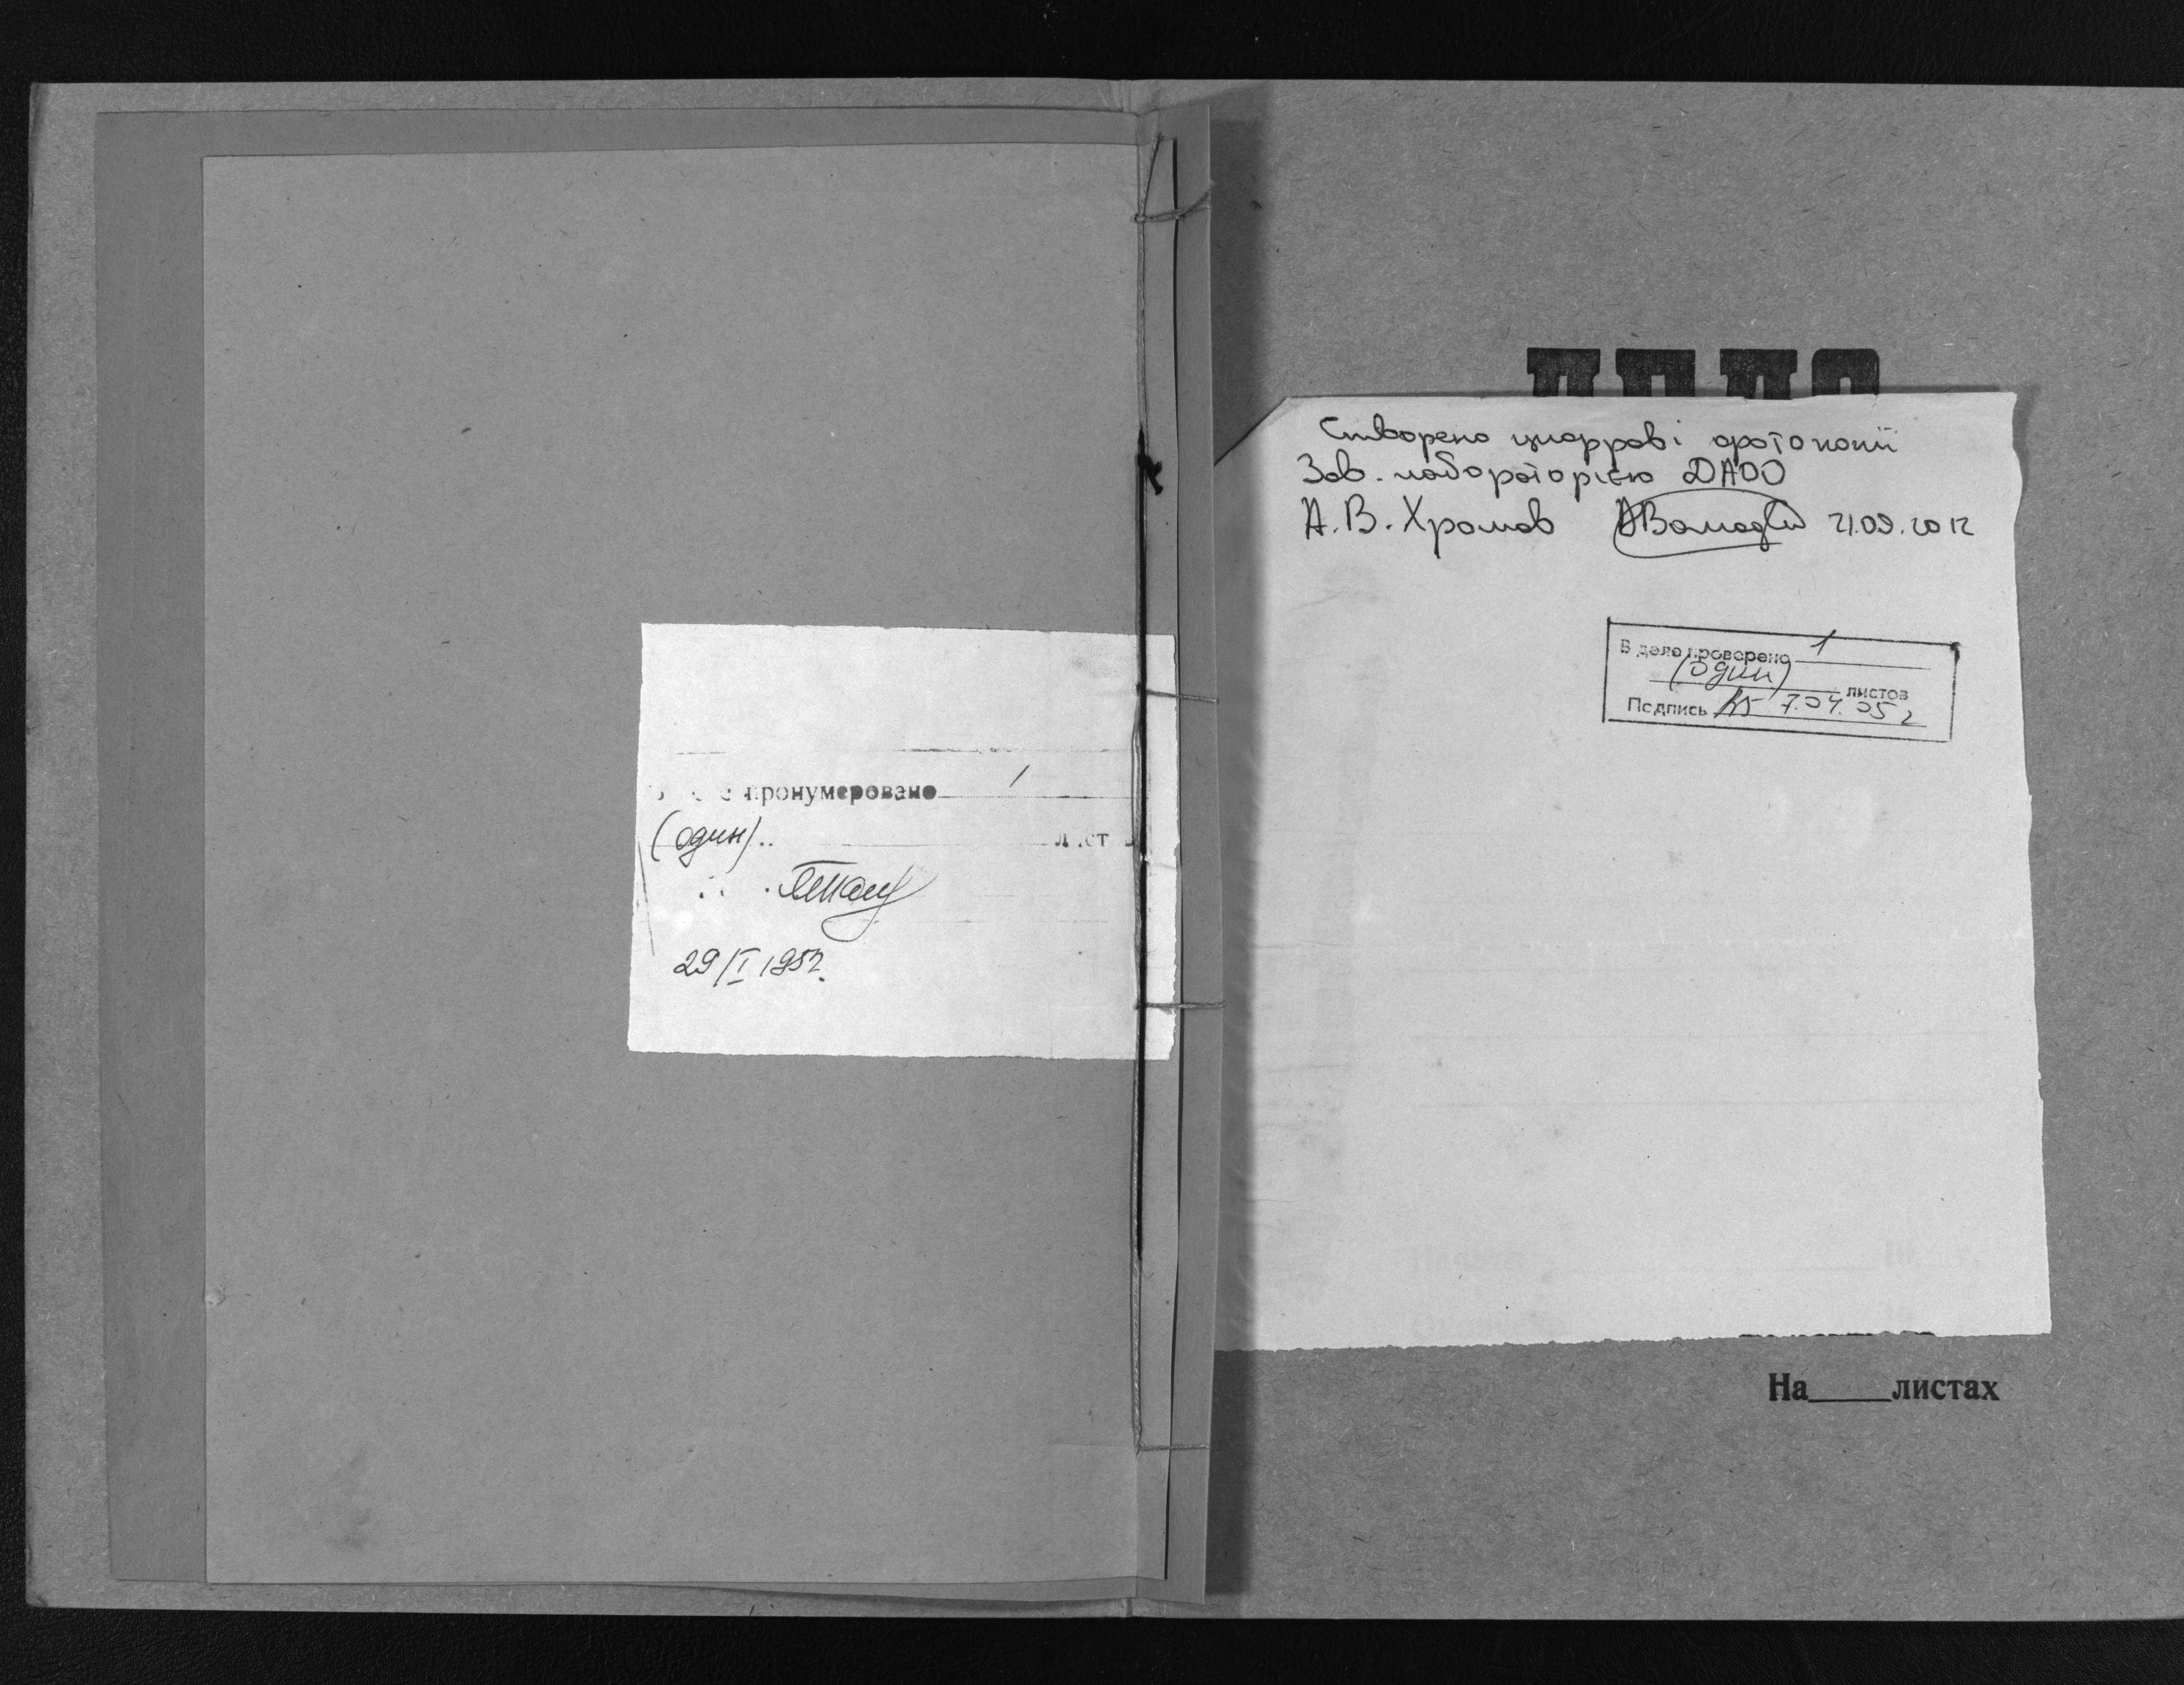 пронумеровано 1
(один)
29/I 1957.
Створено цифрові фотокопії
Зав. лабораторією ДАОО
А. В. Хромов 21.09.2012
В деле проверено 1
(один) листов
Подпись 7.04.05 г
На листах